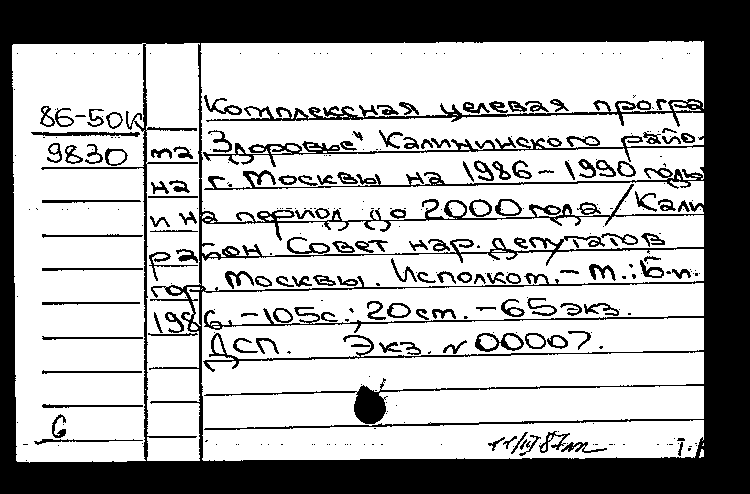 86-50к
9830
Комплексная целевая програ
та „Здоровье" Калининского райо-
на г. Москвы на 1986-1990 годы
и на период до 2000 года / Кали
район. Совет нар. депутатов
гор. Москвы. Исполком. - М.: Б.и.
1986. - 105с.; 20см. - 65экз.
ДСП. Экз. №00007.
6